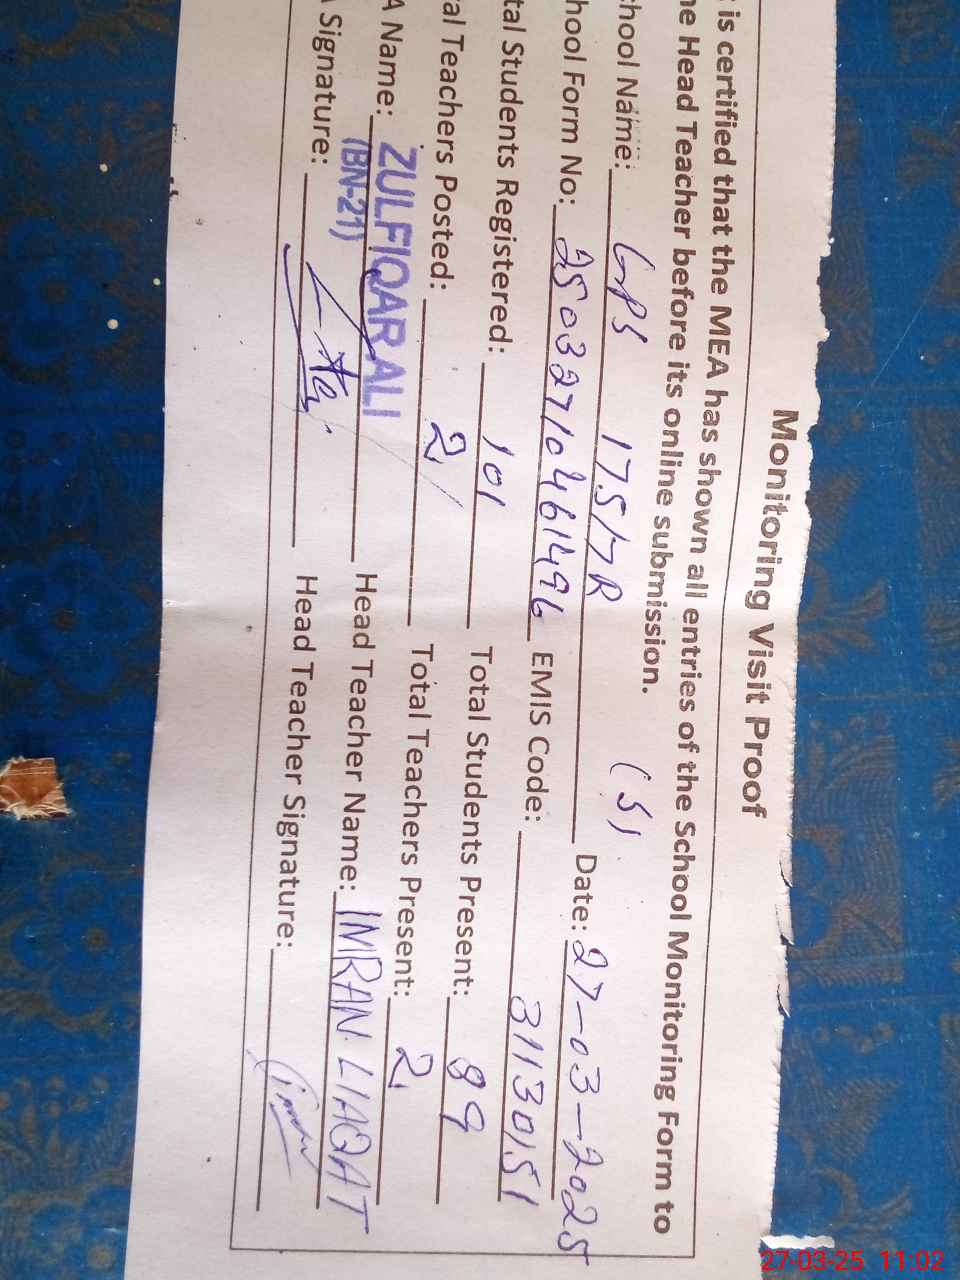 Monitoring Visit Proof
is certified that the MEA has shown all entries of the School Monitoring Form to
he Head Teacher before its online submission.
chool Name: GPS 175/7R (S) Date: 27-03-2025
hool Form No: 25032710461496 EMIS Code: 31130151
tal Students Registered: 101 Total Students Present: 89
al Teachers Posted: 2 Total Teachers Present: 2
A Name: ZULFIQAR ALI Head Teacher Name: IMRAN LIAQAT
(BN-21)
Signature: Head Teacher Signature:
27-03-25 11:02